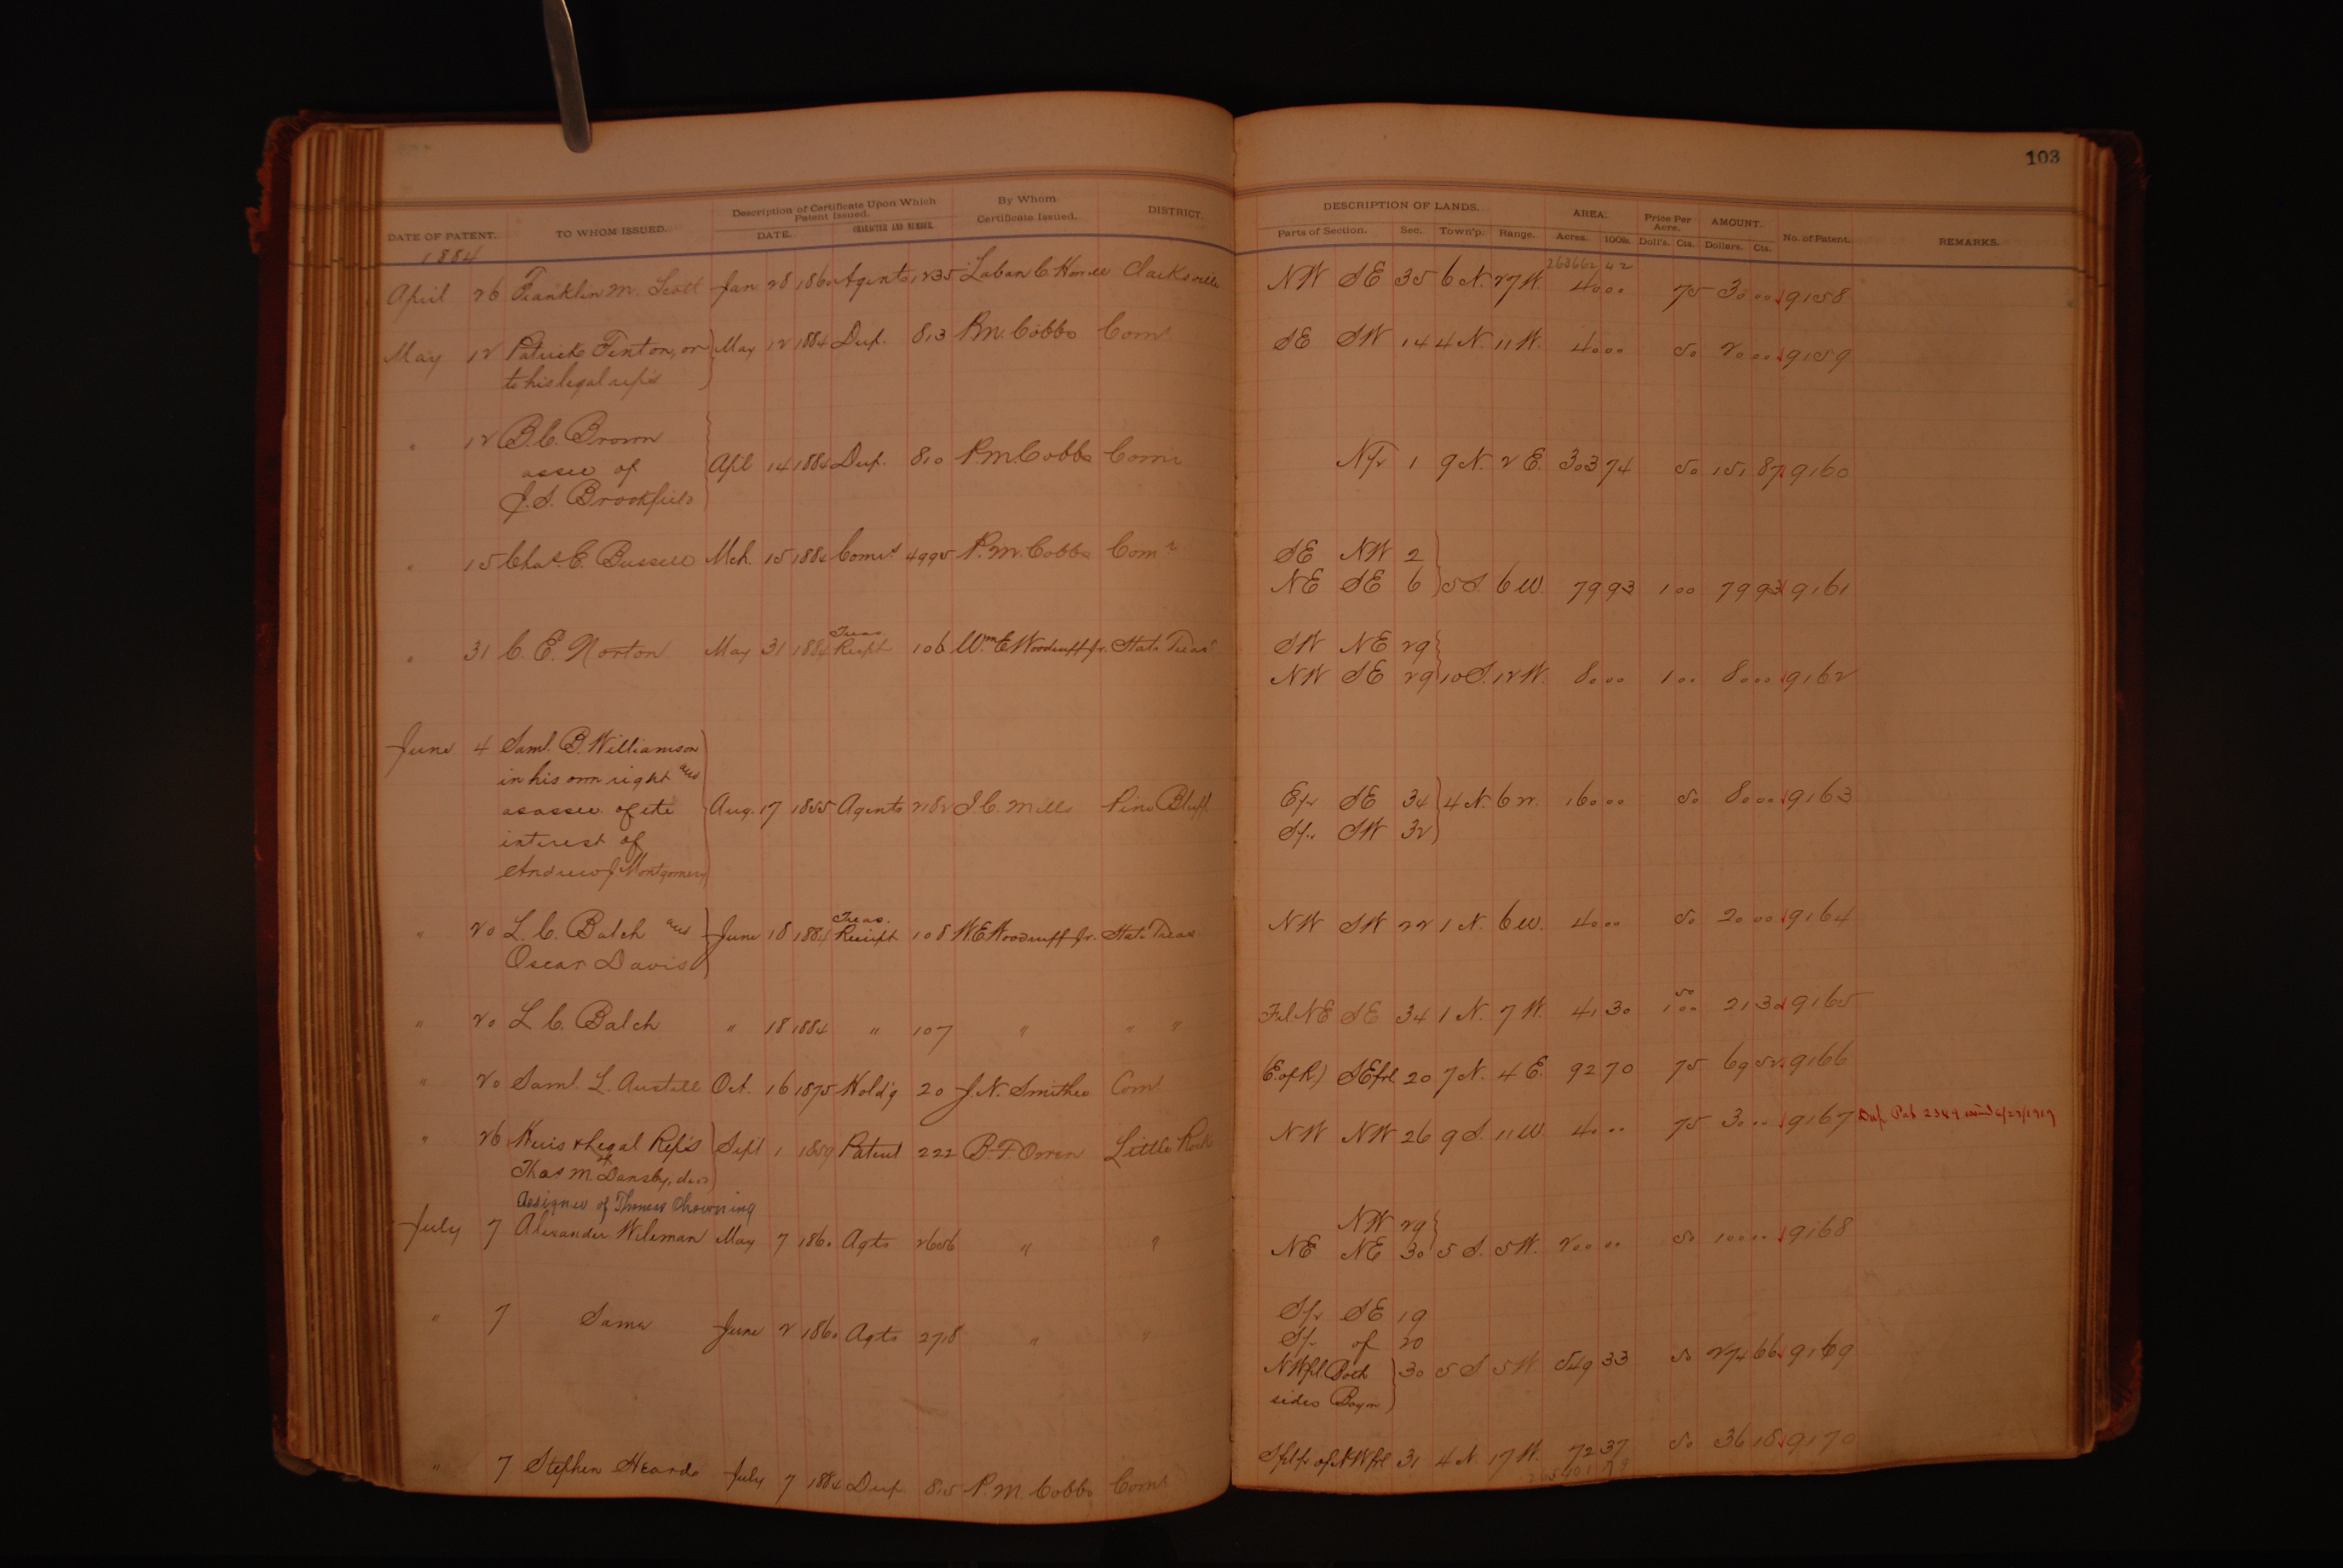 103
DATE OF PATENT. TO WHOM ISSUED. Description of Certificate Upon Which Patent Issued. DATE. CHARACTER AND NUMBER. By Whom Certificate Issued. DISTRICT. DESCRIPTION OF LANDS. Parts of Section. Sec. Town'p. Range. AREA. Acres. 100s. Price Per Acre. Doll's. Cts. AMOUNT. Dollars. Cts. No. of Patent. REMARKS.
1884
263662 42
April 26 Franklin M. Scott Jan 28 1860 Agents 1235 Laban C. Howell Clarksville NW SE 35 6 N. 27 W. 40 00 75 30 00 9158
May 12 Patrick Fenton, or May 12 1884 Dup. 813 P.M. Cobbs Comr SE SW 14 4 N. 11 W. 40 00 50 20 00 9159
to his legal reps
" 12 B.C. Brown
assee of Apl 14 1884 Dup. 810 P.M. Cobbs Comr Nfr 1 9 N. 2 E. 303 74 50 151 87 9160
J.S. Brookfield
" 15 Chas. E. Bussell Mch. 15 1884 Comrs 4995 P.M. Cobbs Comr SE NW 2
NE SE 6 5 S. 6 W. 79 93 1 00 79 93 9161
" 31 C. E. Norton May 31 1884 Treas. Receipt 106 Wm E Woodruff Jr. State Treas SW NE 29
NW SE 29 10 S. 12 W. 80 00 1 00 80 00 9162
June 4 Saml. B. Williamson
in his own right and
as assee of the Aug. 17 1855 Agents 2182 J.C. Mills Pine Bluff Efr SE 34 4 N. 6 W. 160 00 50 80 00 9163
interest of Sfr SW 32
Andrew J Montgomery
" 20 L. C. Balch and June 18 1884 Treas. Receipt 108 W E Woodruff Jr. State Treas NW SW 22 1 N. 6 W. 40 00 50 20 00 9164
Oscar Davis
" 20 L C. Balch " 18 1884 " 107 " " " Frl. NE SE 34 1 N. 7 W. 41 30 50 1 00 21 30 9165
" 20 Saml. L. Austell Oct. 16 1875 Hold'g 20 J. N. Smithee Comr (E. of R) SEfrl 20 7 N. 4 E. 92 70 75 69 52 9166
" 26 Heirs & Legal Reps Sept 1 1859 Patent 222 B. F. Owen Little Rock NW NW 26 9 S. 11 W. 40 00 75 30 00 9167 Dup. Pat 2349 issued 6/27/1919
of Thos M. Dansby, dec
Assignee of Thomas Chowning
July 7 Alexander Wileman May 7 1860 Agts 2656 " " NW 29
NE NE 30 5 S. 5 W. 200 00 50 100 00 9168
" 7 Same June 2 1860 Agts 2718 " " Sfr SE 19
Sfr of 20
NWfrl. Both 30 5 S 5 W 549 33 50 274 66 9169
sides Bayou
" 7 Stephen Heards July 7 1884 Dup 815 P. M. Cobbs Comr Sfrl fr of NWfrl 31 4 N. 17 W. 72 37 50 36 18 9170